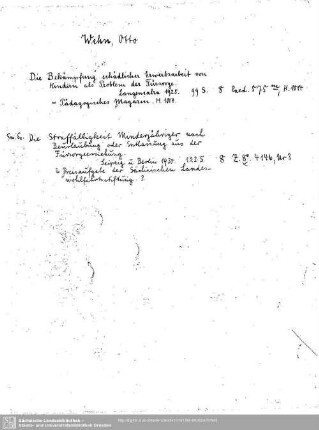 Wehn, Otto
Die Bekämpfung schädlicher Erwerbsarbeit von
Kindern als Problem der Fürsorge.
Langensalza 1925. 99 S. 8 Paed. 575 m, H. 1014
= Pädagogisches Magazin. H. 1014.
Die Straffälligkeit Minderjähriger nach
Beurlaubung oder Entlassung aus der
Fürsorgeerziehung.
Leipzig u. Berlin 1930. 122 S. 8 Z. 8° 4146, Nr 3
= Preisaufgabe der Sächsischen Landes-
wohlfahrtsstiftung. 3
Sächsische Landesbibliothek -
Staats- und Universitätsbibliothek Dresden